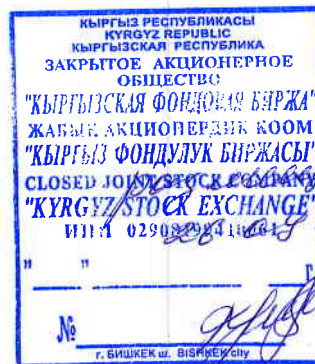 КЫРГЫЗ РЕСПУБЛИКАСЫ
KYRGYZ REPUBLIC
КЫРГЫЗСКАЯ РЕСПУБЛИКА
ЗАКРЫТОЕ АКЦИОНЕРНОЕ
ОБЩЕСТВО
"КЫРГЫЗСКАЯ ФОНДОВАЯ БИРЖА"
ЖАБЫК АКЦИОНЕРДИК КООМ
"КЫРГЫЗ ФОНДУЛУК БИРЖАСЫ"
CLOSED JOINT STOCK COMPANY
"KYRGYZ STOCK EXCHANGE"
ИНН
" " г.
№
г. БИШКЕК ш. BISHKEK city